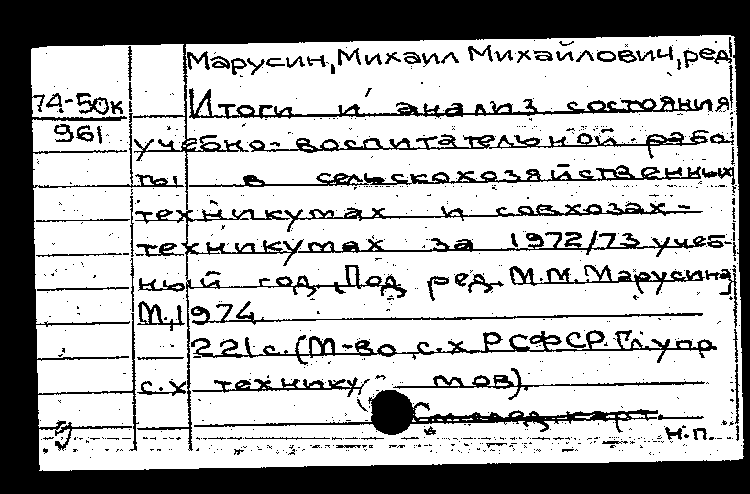 Марусин, Михаил Михайлович, ред.
74-50к
961
Итоги и анализ состояния
учебно-воспитательной рабо-
ты в сельскохозяйственных
техникумах и совхозах-
техникумах за 1972/73 учеб-
ный год. [Под ред. М.М. Марусина]
М., 1974.
221 с. (М-во с.х. РСФСР. Гл. упр.
с.х. техникумов).
См. след. карт.
н.п.